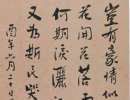 豈有豪情似
花開花落兩
何期淚灑
又為斯民哭
酉年六月二十日